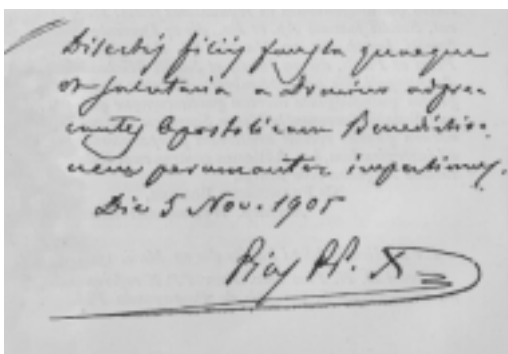 Dilectis filiis fausta quaeque
et salutaria a Domino adpre-
cantes Apostolicam Benedictio-
nem peramanter impertimus.
Die 5 Nov. 1905
Pius PP. X